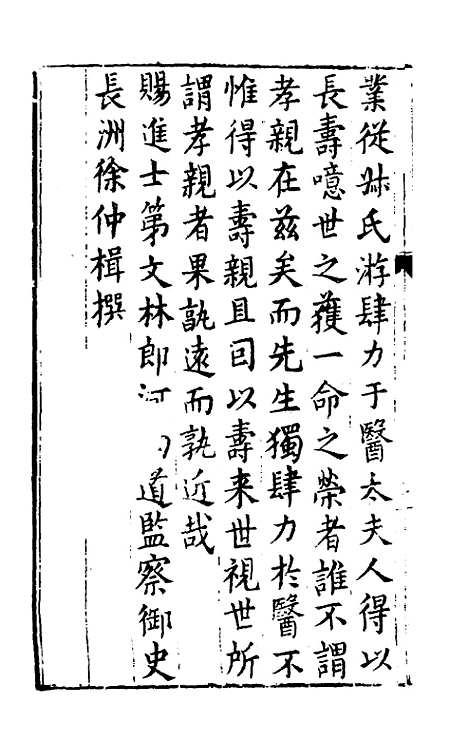 業從叔氏游肆力于醫太夫人得以
長壽噫世之獲一命之榮者誰不謂
孝親在茲矣而先生獨肆力於醫不
惟得以壽親且回以壽来世視世所
謂孝親者果孰遠而孰近哉
賜進士第文林郎河道監察御史
長洲徐仲楫撰